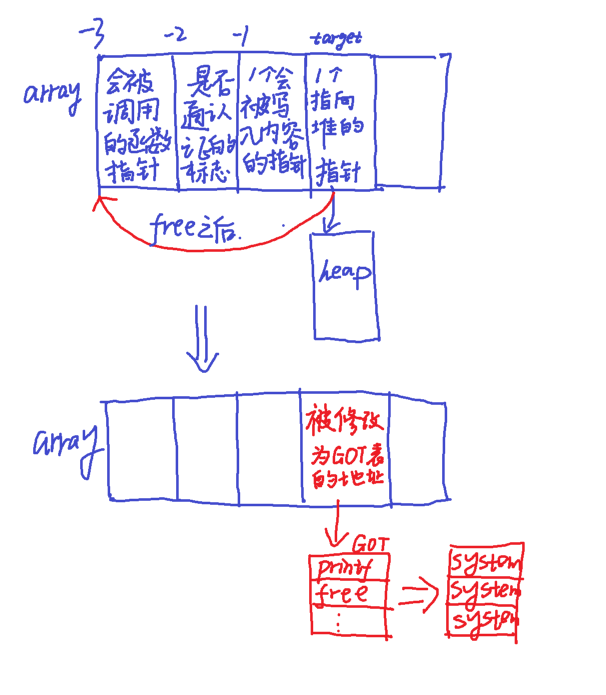 -3 -2 -1 target
array
会被
调用
的函数
指针
是否
通认
证的
标志
1个会
被写
入内容
的指针
1个
指向
堆的
指针
free之后.
heap
array
被修改
为GOT表
的地址
GOT
printf
free
⋮
system
system
system